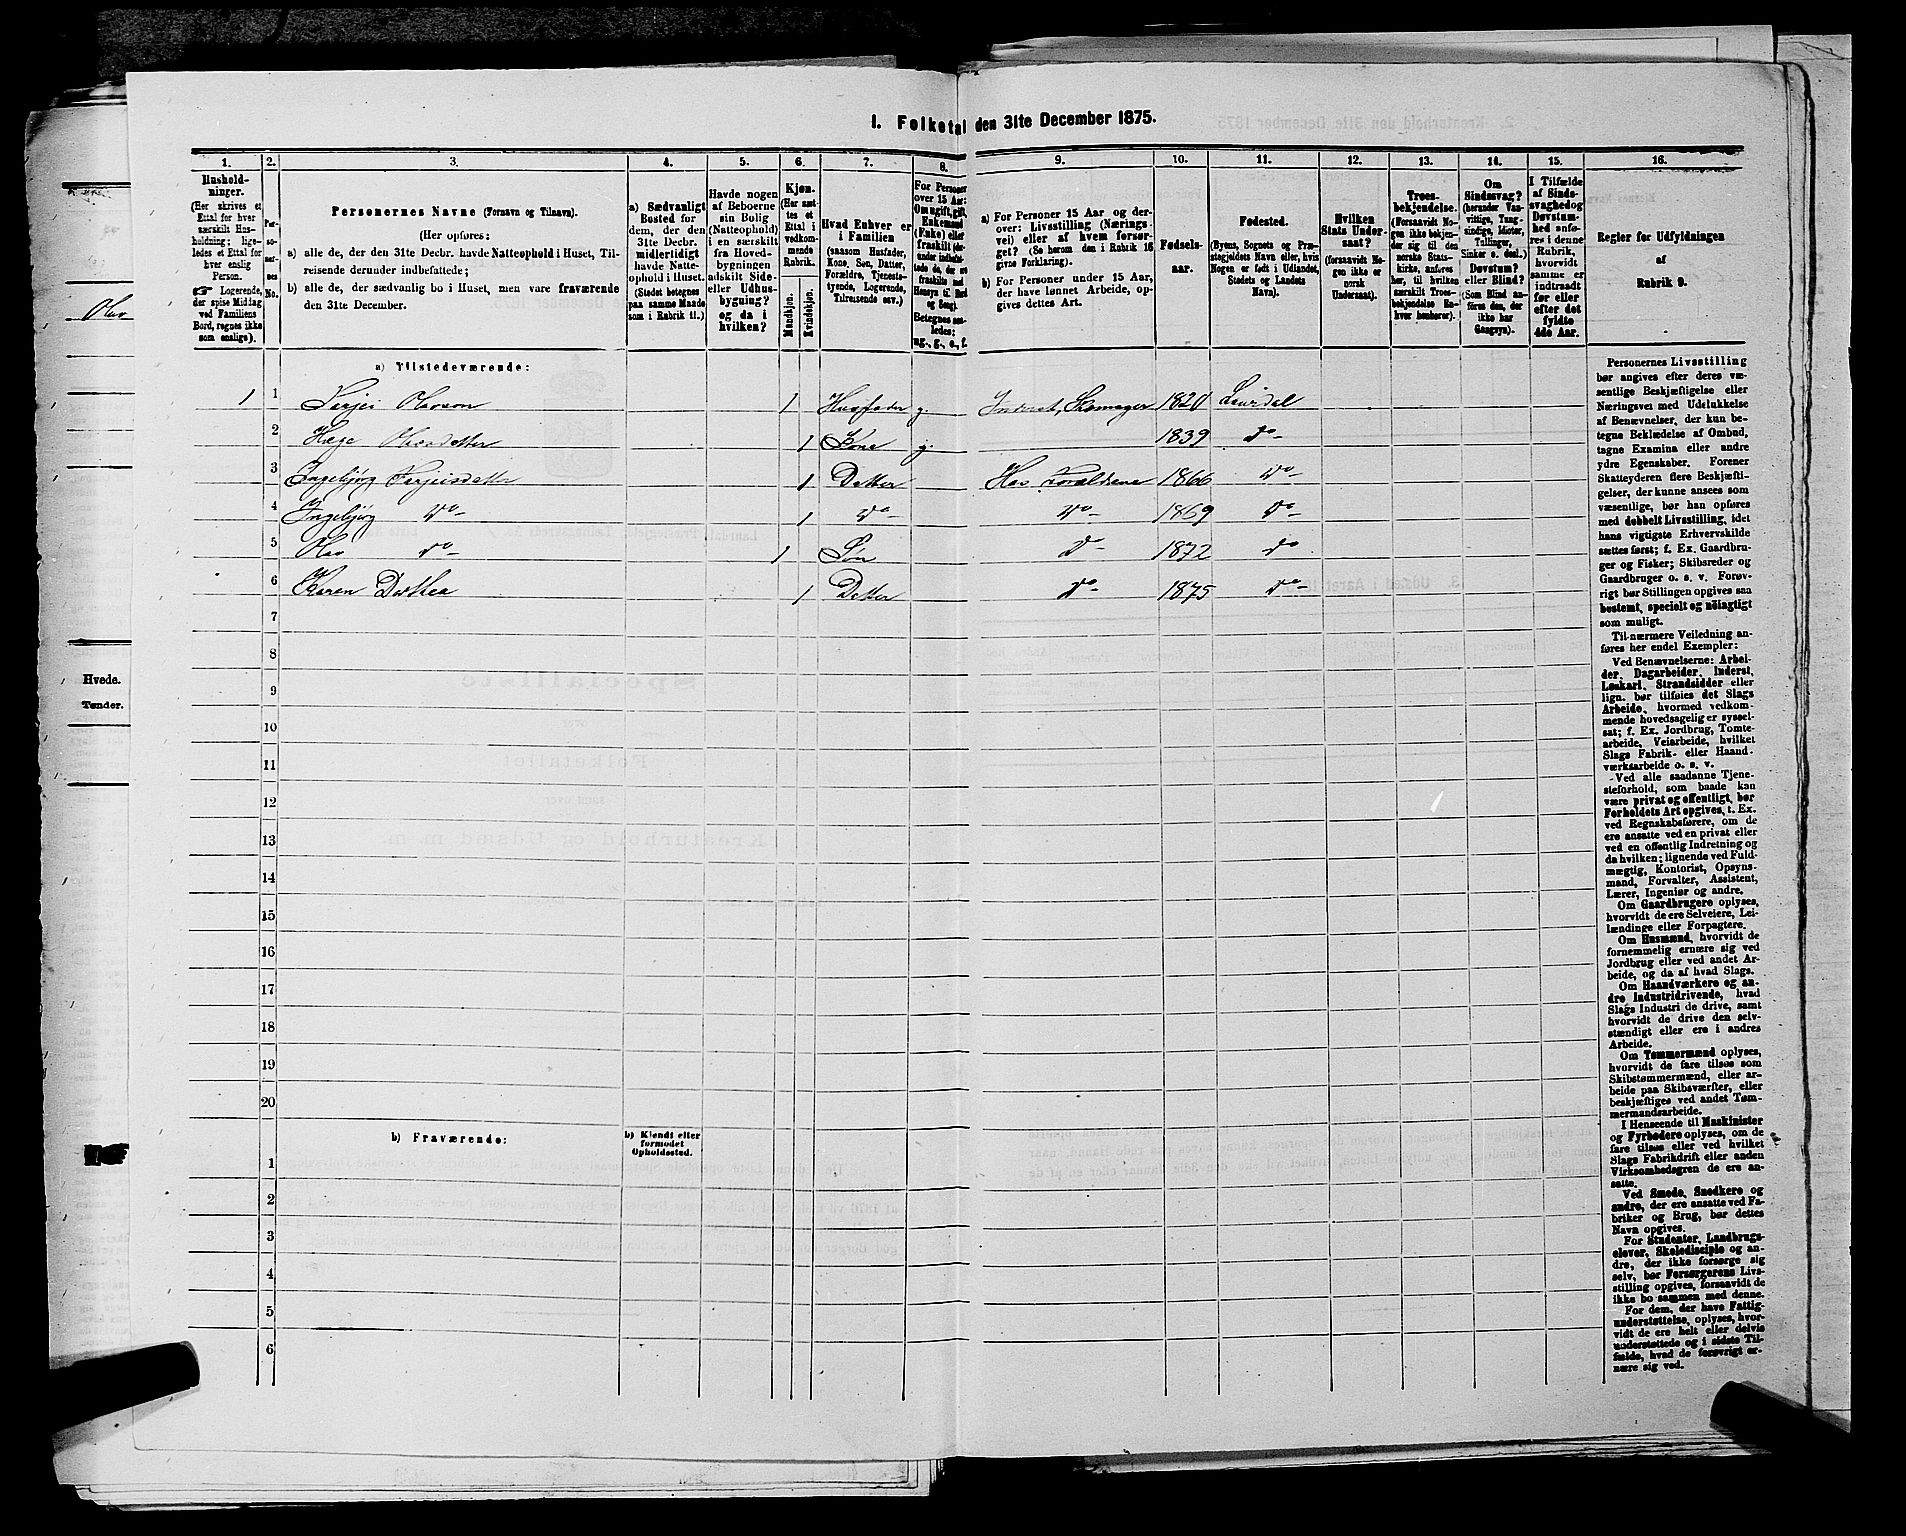 I. Folketal den 31te December 1875.
1. 2. 3. 4. 5. 6. 7. 8. 9. 10. 11. 12. 13. 14. 15. 16.
Husholdninger.
(Her skrives et
Ettal for hver
særskilt Husholdning; ligeledes
et Ettal for
hver enslig
Person.
☞ Logerende,
der spise Middag
ved Familiens
Bord, regnes ikke
som enslige).
Personernes No.
Personernes Navne (Fornavn og Tilnavn).
(Her opføres:
a) alle de, der den 31te Decbr. havde Natteophold i Huset, Tilreisende derunder indbefattede;
b) alle de, der sædvanlig bo i Huset, men vare fraværende
den 31te December.
a) Sædvanligt
Bosted for
dem, der den
31te Decbr.
midlertidigt
havde Natteophold i Huset.
(Stedet betegnes
paa samme Maade
som i Rubrik 11.)
Havde nogen
af Beboerne
sin Bolig
(Natteophold)
i en særskilt
fra Hovedbygningen
adskilt Side-
eller Udhusbygning?
og da i
hvilken?
Kjøn.
(Her sættes et
Ettal i
vedkommende
Rubrik.
Mandkjøn.
Kvindekjøn.
Hvad Enhver er
i Familien
(saasom Husfader,
Kone, Søn, Datter,
Forældre, Tjenestetyende, Logerende,
Tilreisende osv.)
For Personer
over 15 Aar:
Om ugift, gift,
Enkemand
(Enke) eller
fraskilt
Betegnes saaledes:
ug., g., e., f.
a) For Personer 15 Aar og derover: Livsstilling (Næringsvei) eller af hvem forsørget? (Se herom den i Rubrik 16
givne Forklaring).
b) For Personer under 15 Aar,
der have lønnet Arbeide, opgives dettes Art.
Fødselsaar.
Fødested.
(Byens, Sognets og Præstegjeldets Navn eller, hvis
Nogen er født i Udlandet,
Stedets og Landets
Navn).
Hvilken
Stats Undersaat?
(forsaavidt Nogen ikke er
norsk
Undersaat).
Troesbekjendelse.
(Forsaavidt Nogen ikke bekjender sig til den
norske Statskirke, anføres
her, til hvilken
særskilt Troesbekjendelse Enhver henhører).
Om
Sindssvag?
(herunder Vanvittige, Tungsindige, Idioter,
Tullinger,
Sinker o. desl.).
Døvstum?
eller Blind?
(Som Blind anføres den, der
ikke har
Gangsyn).
I Tilfælde
af Sindssvaghed og
Døvstumhed anføres i denne
Rubrik,
hvorvidt
samme er
indtraadt
før eller
efter det
fyldte
4de Aar.
Regler for Udfyldningen
af
Rubrik 9.
a) Tilstedeværende:
1 1 Terjei Olavson 1 Husfader g. Inderst, Skomager 1820 Laurdal
2 Hæge Olavsdatter 1 Kone g. 1839 do
3 Ingebjørg Terjeisdatter 1 Datter Hos Forældrene 1866 do
4 Ingebjørg do 1 do do 1869 do
5 Olav do 1 Søn do 1872 do
6 Karen Dorthea 1 Datter do 1875 do
7
8
9
10
11
12
13
14
15
16
17
18
19
20
b) Fraværende: b) Kjendt eller
formodet
Opholdssted.
1
2
3
4
5
6
Personernes Livsstilling
bør angives efter deres væsentlige Beskjæftigelse eller
Næringsvei med Udelukkelse
af Benævnelser, der kun betegne Beklædelse af Ombud,
tagne Examina eller andre
ydre Egenskaber. Forener
Skatteyderen flere Beskjæftigelser, der kunne ansees som
væsentlige, bør han opføres
med dobbelt Livsstilling, idet
hans vigtigste Erhvervskilde
sættes først; f. Ex. Gaardbruger og Fisker; Skibsreder og
Gaardbruger o. s. v. Forøvrigt bør Stillingen opgives saa
bestemt, specielt og nøiagtigt
som muligt.
Til nærmere Veiledning anføres her endel Exempler:
Ved Benævnelserne: Arbeider, Dagarbeider, Inderst,
Løskarl, Strandsidder eller
lign. bør tilføies det Slags
Arbeide, hvormed vedkommende hovedsagelig er sysselsat; f. Ex. Jordbrug, Tomtearbeide, Veiarbeide, hvilket
Slags Fabrik- eller Haandværksarbeide o. s. v.
Ved alle saadanne Tjenesteforhold, som baade kan
være privat og offentligt, bør
Forholdets Art opgives, t. Ex.
ved Regnskabsførere, om de
ere ansatte ved en privat eller
ved en offentlig Indretning og
da hvilken; lignende ved Fuldmægtig, Kontorist, Opsynsmand, Forvalter, Assistent,
Lærer, Ingeniør og andre.
Om Gaardbrugere oplyses,
hvorvidt de ere Selveiere, Leilændinge eller Forpagtere.
Om Husmænd, hvorvidt de
fornemmelig ernære sig ved
Jordbrug eller ved andet Arbeide, og da af hvad Slags.
Om Haandværkere og andre Industridrivende, hvad
Slags Industri de drive, samt
hvorvidt de drive den selvstændigt eller ere i andres
Arbeide.
Om Tømmermænd oplyses,
hvorvidt de fare tilsøs som
Skibstømmermænd, eller arbeide paa Skibsværfter, eller
beskjæftiges ved andet Tømmermandsarbeide.
I Henseende til Maskinister
og Fyrbødere oplyses, om de
fare tilsøs eller ved hvilket
Slags Fabrikdrift eller anden
Virksomhedsgren de ere ansatte.
Ved Smede, Snedkere og
andre, der ere ansatte ved Fabriker og Brug, bør dettes
Navn opgives.
For Studenter, Landbrugselever, Skoledisciple og andre, der ikke forsørge sig
selv, bør Forsørgerens Livsstilling opgives, forsaavidt de
ikke bo sammen med denne.
For dem, der have Fattigunderstøttelse, oplyses, hvorvidt de ere helt eller delvis
understøttede og i sidste Tilfælde, hvad de forøvrigt ernære sig ved.
Olav
Hvede.
Tønder.